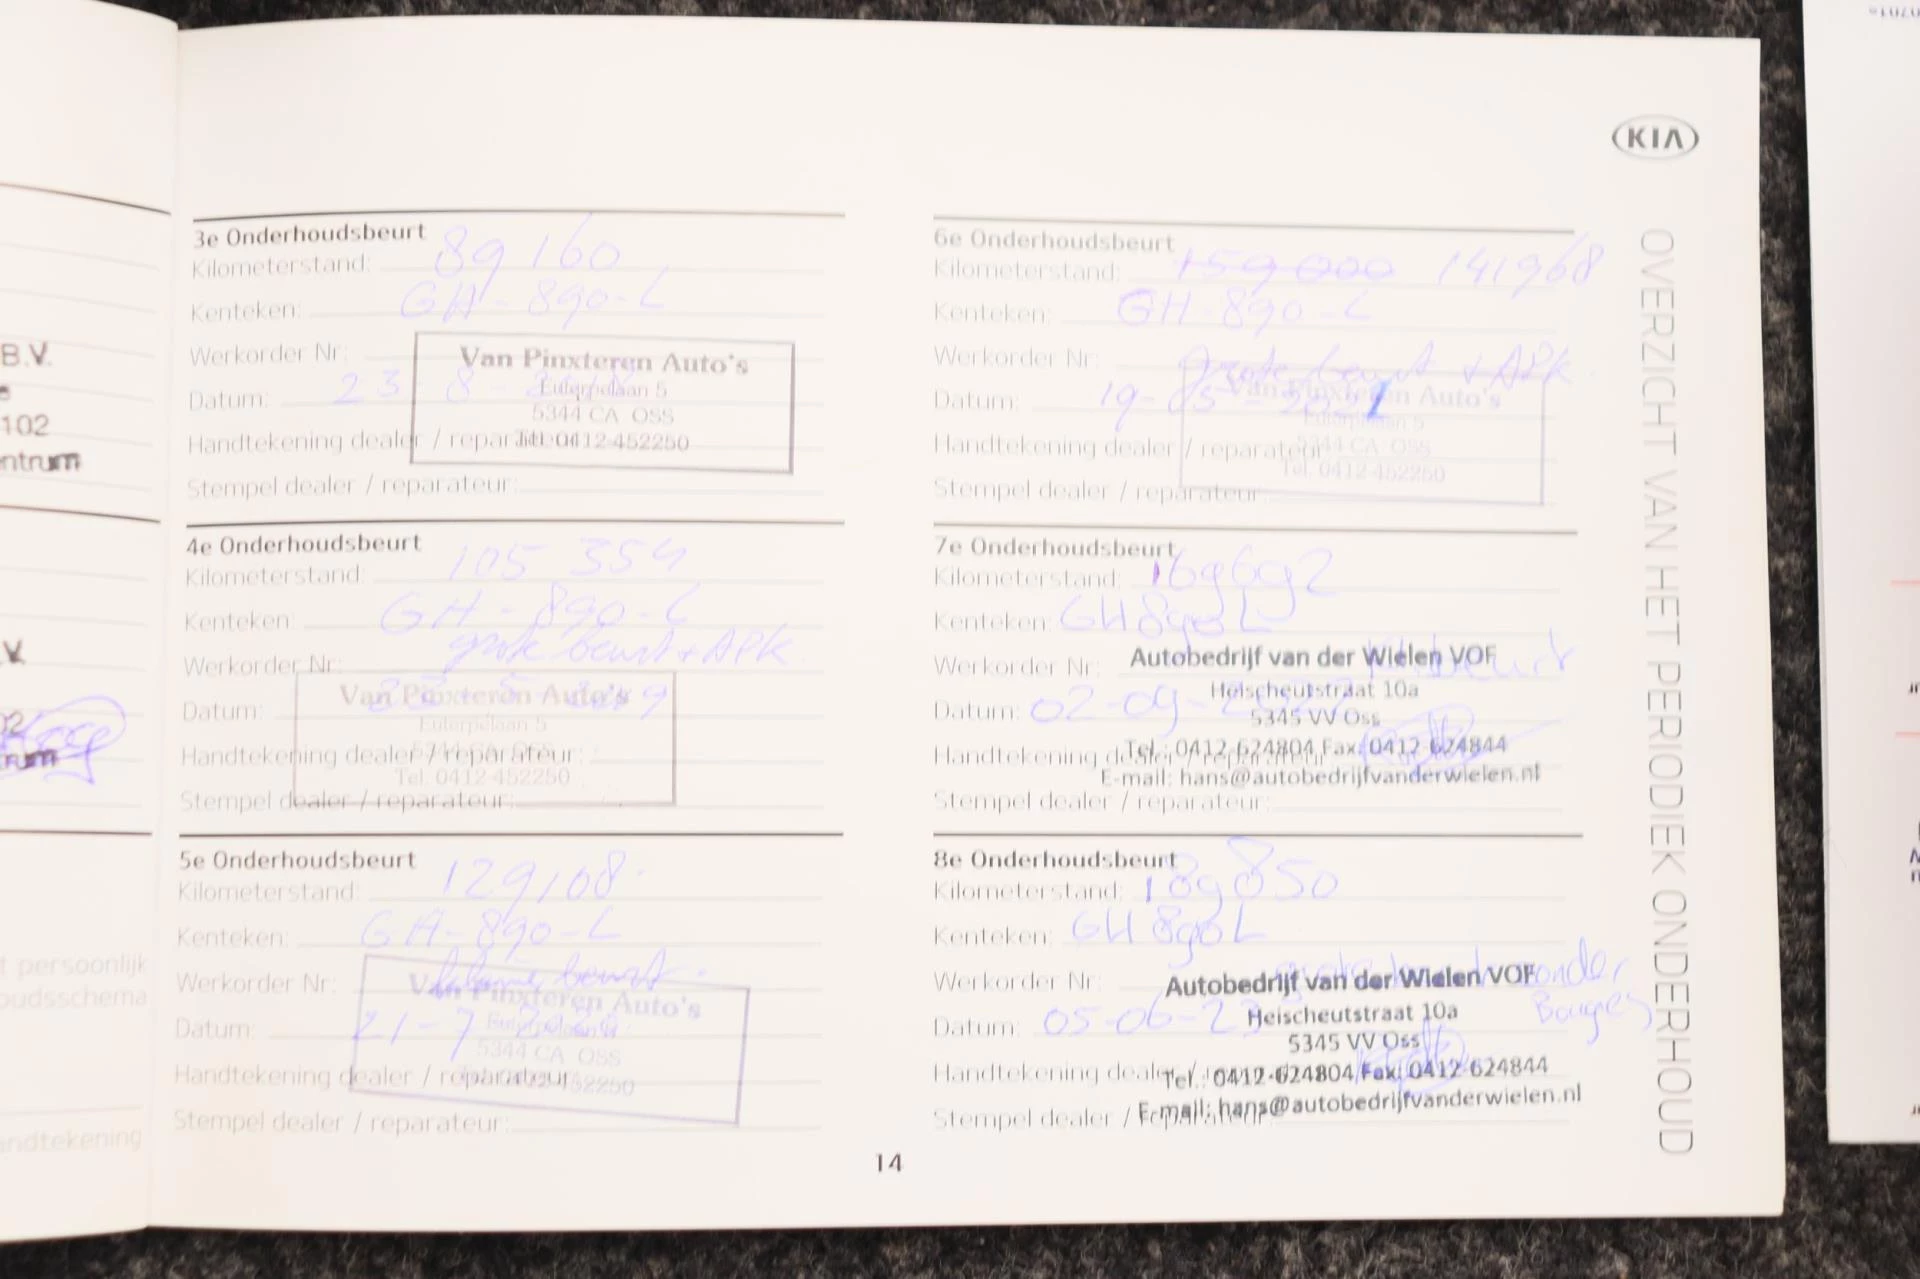 B.V.
102
ntrum
.V.
02
trum
t persoonlijk
oudsschema
andtekening
KIA
OVERZICHT VAN HET PERIODIEK ONDERHOUD
3e Onderhoudsbeurt
Kilometerstand: 89160
Kenteken: GH-890-L
Werkorder Nr:
Datum: 23-8-
Handtekening dealer / reparateur:
Stempel dealer / reparateur:
Van Pinxteren Auto's
Euterpelaan 5
5344 CA OSS
Tel. 0412-452250
4e Onderhoudsbeurt
Kilometerstand: 105 354
Kenteken: GH-890-L
Werkorder Nr: grote beurt + APK
Datum:
Handtekening dealer / reparateur:
Stempel dealer / reparateur:
Van Pinxteren Auto's
Euterpelaan 5
5344 CA OSS
Tel. 0412-452250
5e Onderhoudsbeurt
Kilometerstand: 129108
Kenteken: GH-890-L
Werkorder Nr: kleine beurt
Datum: 21-7-
Handtekening dealer / reparateur:
Stempel dealer / reparateur:
Van Pinxteren Auto's
Euterpelaan 5
5344 CA OSS
Tel. 0412-452250
6e Onderhoudsbeurt
Kilometerstand: 159000 141968
Kenteken: GH-890-L
Werkorder Nr: grote beurt + APK
Datum: 19-05-2021
Handtekening dealer / reparateur:
Stempel dealer / reparateur:
Van Pinxteren Auto's
Euterpelaan 5
5344 CA OSS
Tel. 0412-452250
7e Onderhoudsbeurt
Kilometerstand: 169692
Kenteken: GH890L
Werkorder Nr: beurt
Datum: 02-09-
Handtekening dealer / reparateur:
Stempel dealer / reparateur:
Autobedrijf van der Wielen VOF
Heischeutstraat 10a
5345 VV Oss
Tel.: 0412-624804 Fax: 0412-624844
E-mail: hans@autobedrijfvanderwielen.nl
8e Onderhoudsbeurt
Kilometerstand: 189850
Kenteken: GH890L
Werkorder Nr: grote beurt zonder
Bougies
Datum: 05-06-23
Handtekening dealer / reparateur:
Stempel dealer / reparateur:
Autobedrijf van der Wielen VOF
Heischeutstraat 10a
5345 VV Oss
Tel.: 0412-624804 Fax: 0412-624844
E-mail: hans@autobedrijfvanderwielen.nl
14